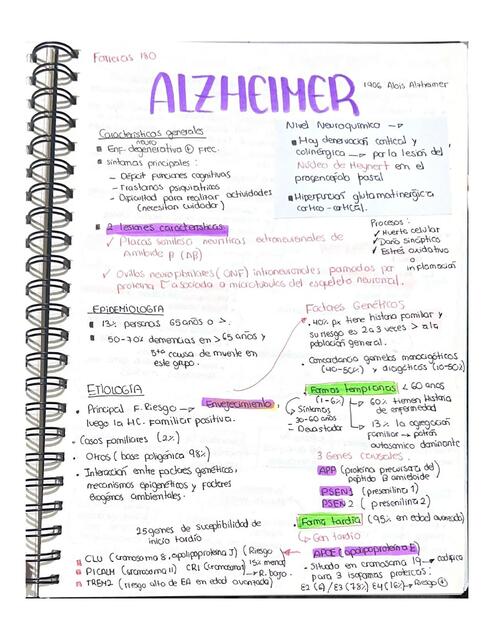 Farreras 180
ALZHEIMER
1906 Alois Alzheimer
Características generales
■ Enf. neuro degenerativa ⊕ frec.
■ síntomas principales:
– Déficit funciones cognitivas
– Trastornos psiquiátricos
– Dificultad para realizar actividades
(necesitan cuidador)
Nivel Neuroquímico →
■ Hay denervación cortical y
colinérgica → por la lesión del
Núcleo de Meynert en el
prosencéfalo basal
■ Hiperfunción glutamatinérgica
cortico - cortical.
■ 2 lesiones características
✓ Placas seniles o neuríticas extraneuronales de
Amiloide β (Aβ)
✓ Ovillos neurofibrilares (ONF) intraneuronales formados por
proteína τ asociada a microtúbulos del esqueleto neuronal.
Procesos:
✓ Muerte celular
✓ Daño sináptico
✓ Estrés oxidativo
o
inflamación
EPIDEMIOLOGÍA
■ 13% personas 65 años o >.
■ 50-70% demencias en >65 años y
5ta causa de muerte en
este grupo.
Factores Genéticos
• 40% px tiene historia familiar y
su riesgo es 2 a 3 veces > a la
población general.
• Concordancia gemelos monocigóticos
(40-50%) y dicigóticos (10-50%)
ETIOLOGÍA
• Principal F. Riesgo → Envejecimiento,
luego la HC. Familiar positiva.
• Casos familiares (2%)
• Otros (base poligénica 98%)
• Interacción entre factores genéticos,
mecanismos epigenéticos y factores
exógenos ambientales.
• Formas tempranas < 60 años
(1-6%)
Síntomas
30-60 años
= Devastador
→ 60% tienen historia
de enfermedad
→ 13% la agregación
familiar → patrón
autosómico dominante
3 Genes causales:
APP (proteína precursora del
péptido β amieloide
PSEN1 (presenilina 1)
PSEN 2 (presenilina 2)
• Forma tardía (95% en edad avanzada)
↳ Gen tardío
APOE (apolipoproteína E)
- Situado en cromosoma 19 → codifica
para 3 isoformas proteicas:
E2 (6%) E3 (78%) E4 (16%) → Riesgo ⊕
25 genes de suceptibilidad de
inicio tardío
■ CLU (cromosoma 8, apolipoproteína J) (Riesgo
15% menor)
■ PICALM (cromosoma 11) CR1 (cromosoma → R. bajo.
■ TREM2 (riesgo alto de EA en edad avanzada)